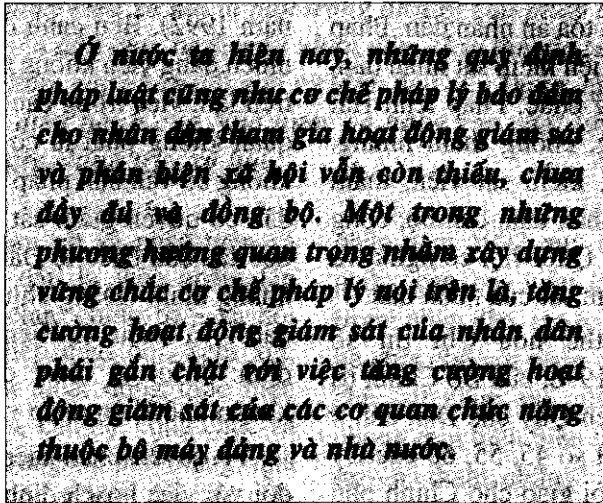 Ở nước ta hiện nay, những quy định
pháp luật cũng như cơ chế pháp lý bảo đảm
cho nhân dân tham gia hoạt động giám sát
và phản biện xã hội vẫn còn thiếu, chưa
đầy đủ và đồng bộ. Một trong những
phương hướng quan trọng nhằm xây dựng
vững chắc cơ chế pháp lý nói trên là, tăng
cường hoạt động giám sát của nhân dân
phải gắn chặt với việc tăng cường hoạt
động giám sát của các cơ quan chức năng
thuộc bộ máy đảng và nhà nước.